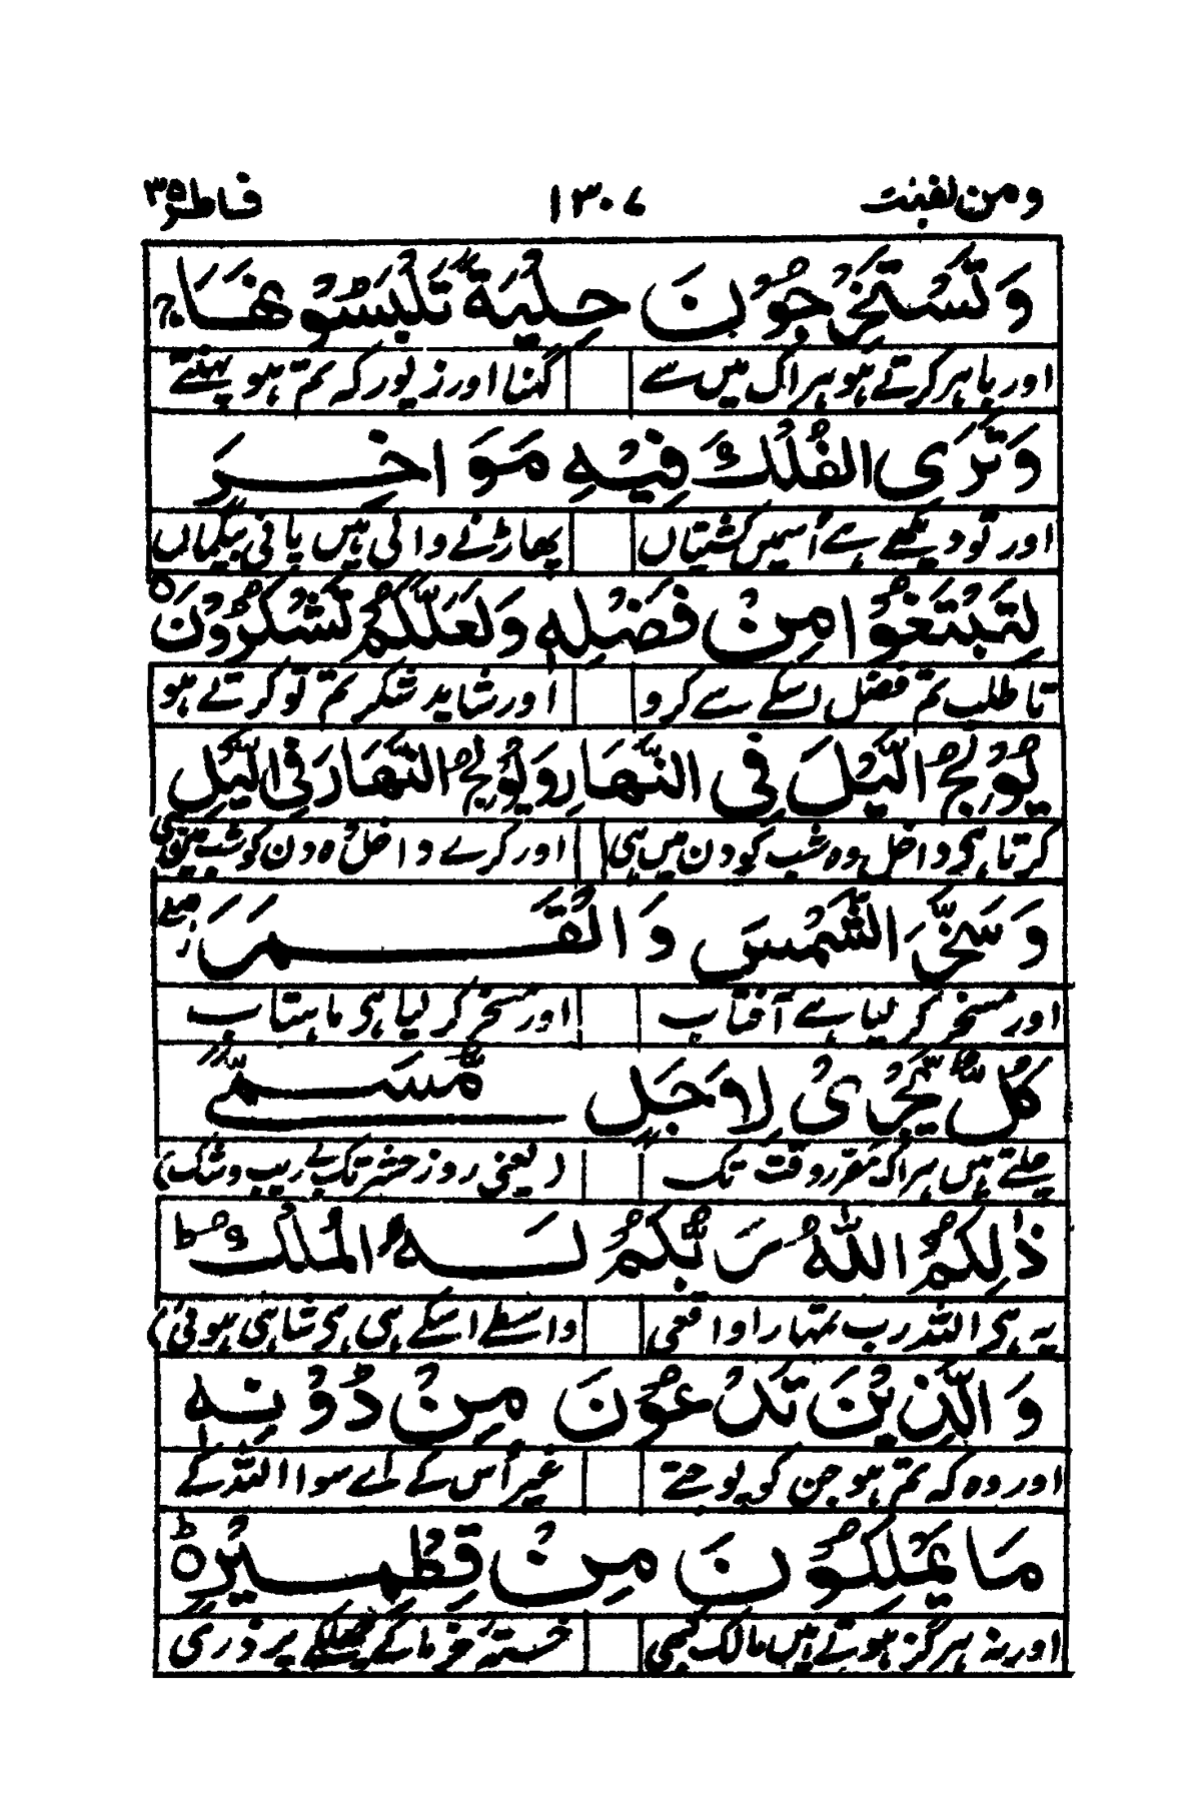 ومن یقنت ۱۳۰۷ فاطر ۳۵
وَتَسْتَخْرِجُوْنَ حِلْيَةً تَلْبَسُوْنَهَا ۚ
اور باہر کرتے ہو ہر اک میں سے گہنا اور زیور کہ تم ہو پہنتے
وَتَرَى الْفُلْكَ فِيْهِ مَوَاخِرَ
اور تو دیکھے ہے اُسمیں کشتیاں پھاڑنے والی ہیں پانی بیگماں
لِتَبْتَغُوْا مِنْ فَضْلِهٖ وَلَعَلَّكُمْ تَشْكُرُوْنَ ۝
تا طلب تم فضل اسکے سے کرو اور شاید شکر تم تو کرتے ہو
يُوْلِجُ الَّيْلَ فِى النَّهَارِ وَيُوْلِجُ النَّهَارَ فِى الَّيْلِ
کرتا ہی داخل وہ شب کو دن میں ہی اور کرے داخل وہ دن کو شب میں
وَسَخَّرَ الشَّمْسَ وَالْقَمَرَ
اور مسخر کر لیا ہے آفتاب اور مسخر کر لیا ہی ماہتاب
كُلٌّ يَّجْرِىْ لِاَجَلٍ مُّسَمًّى
چلتے ہیں ہر اک مقرر وقت تک (یعنی روز حشر تک بے ریب و شک)
ذٰلِكُمُ اللّٰهُ رَبُّكُمْ لَهُ الْمُلْكُ ط
یہ ہی اللہ رب تمہارا واقعی واسطے اسکے ہی ہی شاہی ہوئی)
وَالَّذِيْنَ تَدْعُوْنَ مِنْ دُوْنِهٖ
اور وہ کہ تم ہو جن کو پوجتے غیر اُس کے اے سوا اللہ کے
مَا يَمْلِكُوْنَ مِنْ قِطْمِيْرٍ ۝ ط
اور نہ ہرگز ہوتے ہیں مالک کبھی خستہ خرما کے چھلکے پر ذری